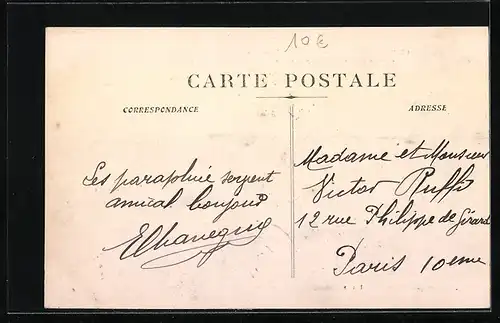 10€
CARTE POSTALE
CORRESPONDANCE
ADRESSE
Les
amical bonjour
Madame et Monsieur
Victor
12 rue Philippe de Girard
Paris 10eme